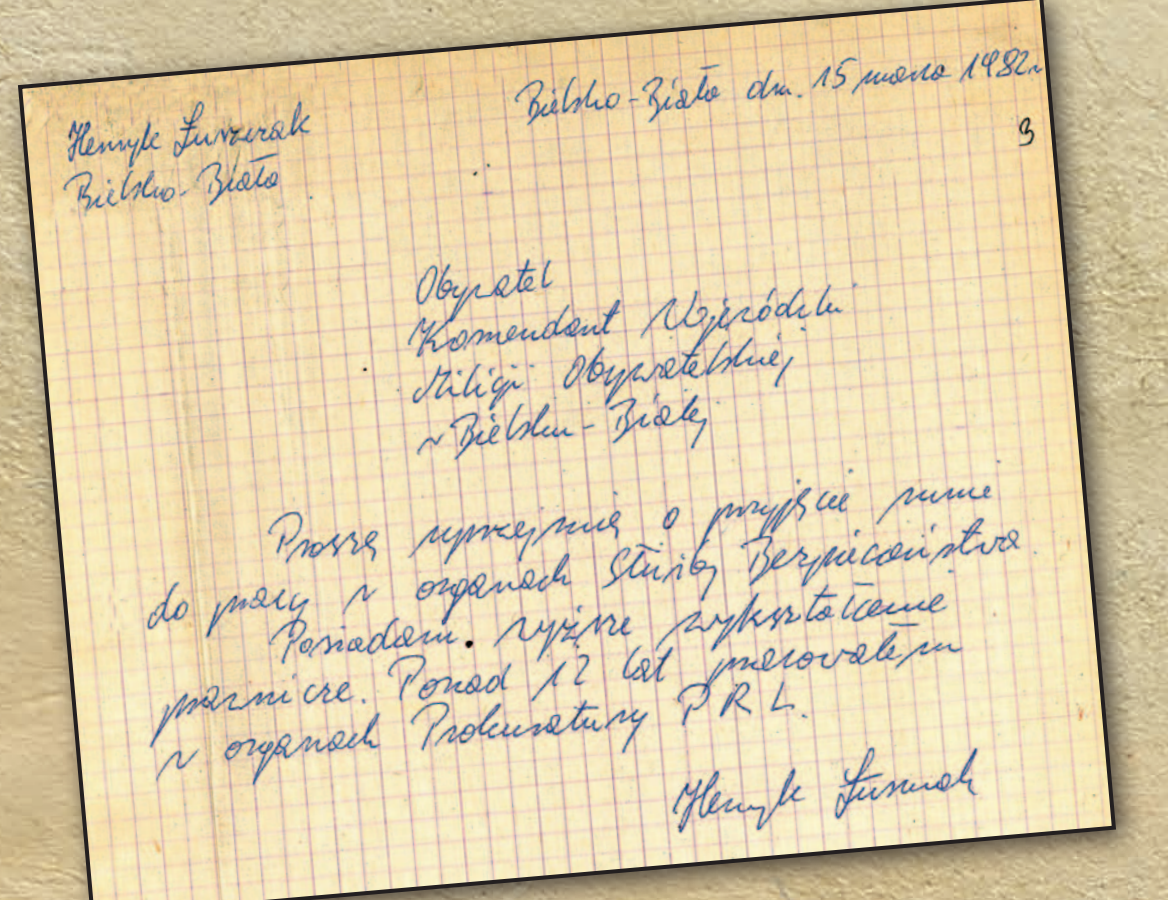 Bielsko-Biała dn. 15 marca 1982r
3
Henryk
Bielsko-Biała
Obywatel
Komendant Wojewódzki
Milicji Obywatelskiej
w Bielsku-Białej
Proszę uprzejmie o przyjęcie mnie
do pracy w organach Służby Bezpieczeństwa
Posiadam wyższe wykształcenie
prawnicze. Ponad 12 lat pracowałem
w organach Prokuratury P R L.
Henryk